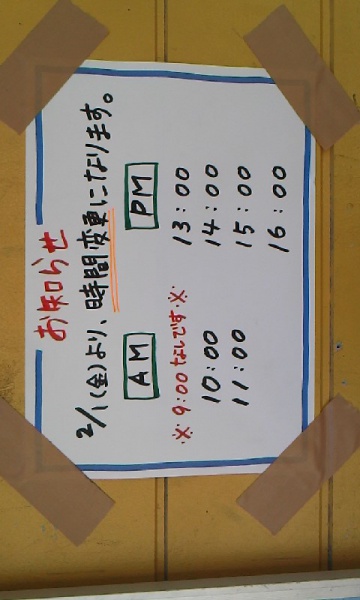 お知らせ
2/1(金)より、時間変更になります。
AM
※9:00なしです※
10:00
11:00
PM
13:00
14:00
15:00
16:00